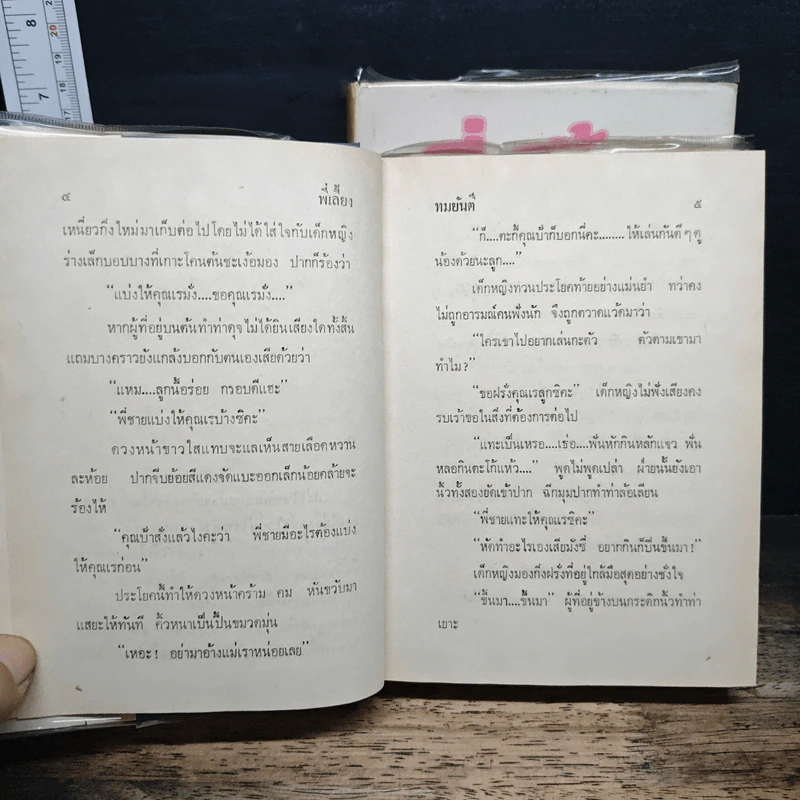 ๔
พี่เลี้ยง
เหนี่ยวกิ่งใหม่มาเก็บต่อไปโดยไม่ได้ใส่ใจกับเด็กหญิง
ร่างเล็กบอบบางที่เกาะโคนต้นชะเง้อมอง ปากก็ร้องว่า
“แบ่งให้คุณเรมั่ง....ขอคุณเรมั่ง....”
หากผู้ที่อยู่บนต้นทำท่าดุจไม่ได้ยินเสียงใดทั้งสิ้น
แถมบางคราวยังแกล้งบอกกับตนเองเสียด้วยว่า
“แหม....ลูกนี้อร่อย กรอบดีแฮะ”
“พี่ชายแบ่งให้คุณเรบ้างซิคะ”
ดวงหน้าขาวใสแทบจะแลเห็นสายเลือดหวาน
ละห้อย ปากจีบย้อยสีแดงจัดแบะออกเล็กน้อยคล้ายจะ
ร้องไห้
“คุณป้าสั่งแล้วไงคะว่า พี่ชายมีอะไรต้องแบ่ง
ให้คุณเรก่อน”
ประโยคนี้ทำให้ดวงหน้าคร้าม คม หันขวับมา
แสยะให้ทันที คิ้วหนาเป็นปื้นขมวดมุ่น
“เหอะ! อย่ามาอ้างแม่เราหน่อยเลย”
ทมยันตี
๕
“ก็....ตะกี้คุณป้าก็บอกนี่คะ........ให้เล่นกันดีๆดู
น้องด้วยนะลูก....”
เด็กหญิงทวนประโยคท้ายอย่างแม่นยำ ทว่าคง
ไม่ถูกอารมณ์คนฟังนัก จึงถูกตวาดแว้ดมาว่า
“ใครเขาไปอยากเล่นกะตัว ตัวตามเขามา
ทำไม?”
“ขอฝรั่งคุณเรลูกซิคะ” เด็กหญิงไม่ฟังเสียงคง
รบเร้าขอในสิ่งที่ต้องการต่อไป
“แทะเป็นเหรอ....เธ่อ....ฟันหักกินหลักแจว ฟัน
หลอกินตะโก้แห้ว....” พูดไม่พูดเปล่า ฝ่ายนั้นยังเอา
นิ้วทั้งสองยัดเข้าปาก ฉีกมุมปากทำท่าล้อเลียน
“พี่ชายแทะให้คุณเรซิคะ”
“หัดทำอะไรเองเสียมั่งซี่ อยากกินก็ปีนขึ้นมา!”
เด็กหญิงมองกิ่งฝรั่งที่อยู่ใกล้มือสุดอย่างชั่งใจ
“ขึ้นมา....ขึ้นมา” ผู้ที่อยู่ข้างบนกระดิกนิ้วทำท่า
เยาะ
8
7
20
19
18
17